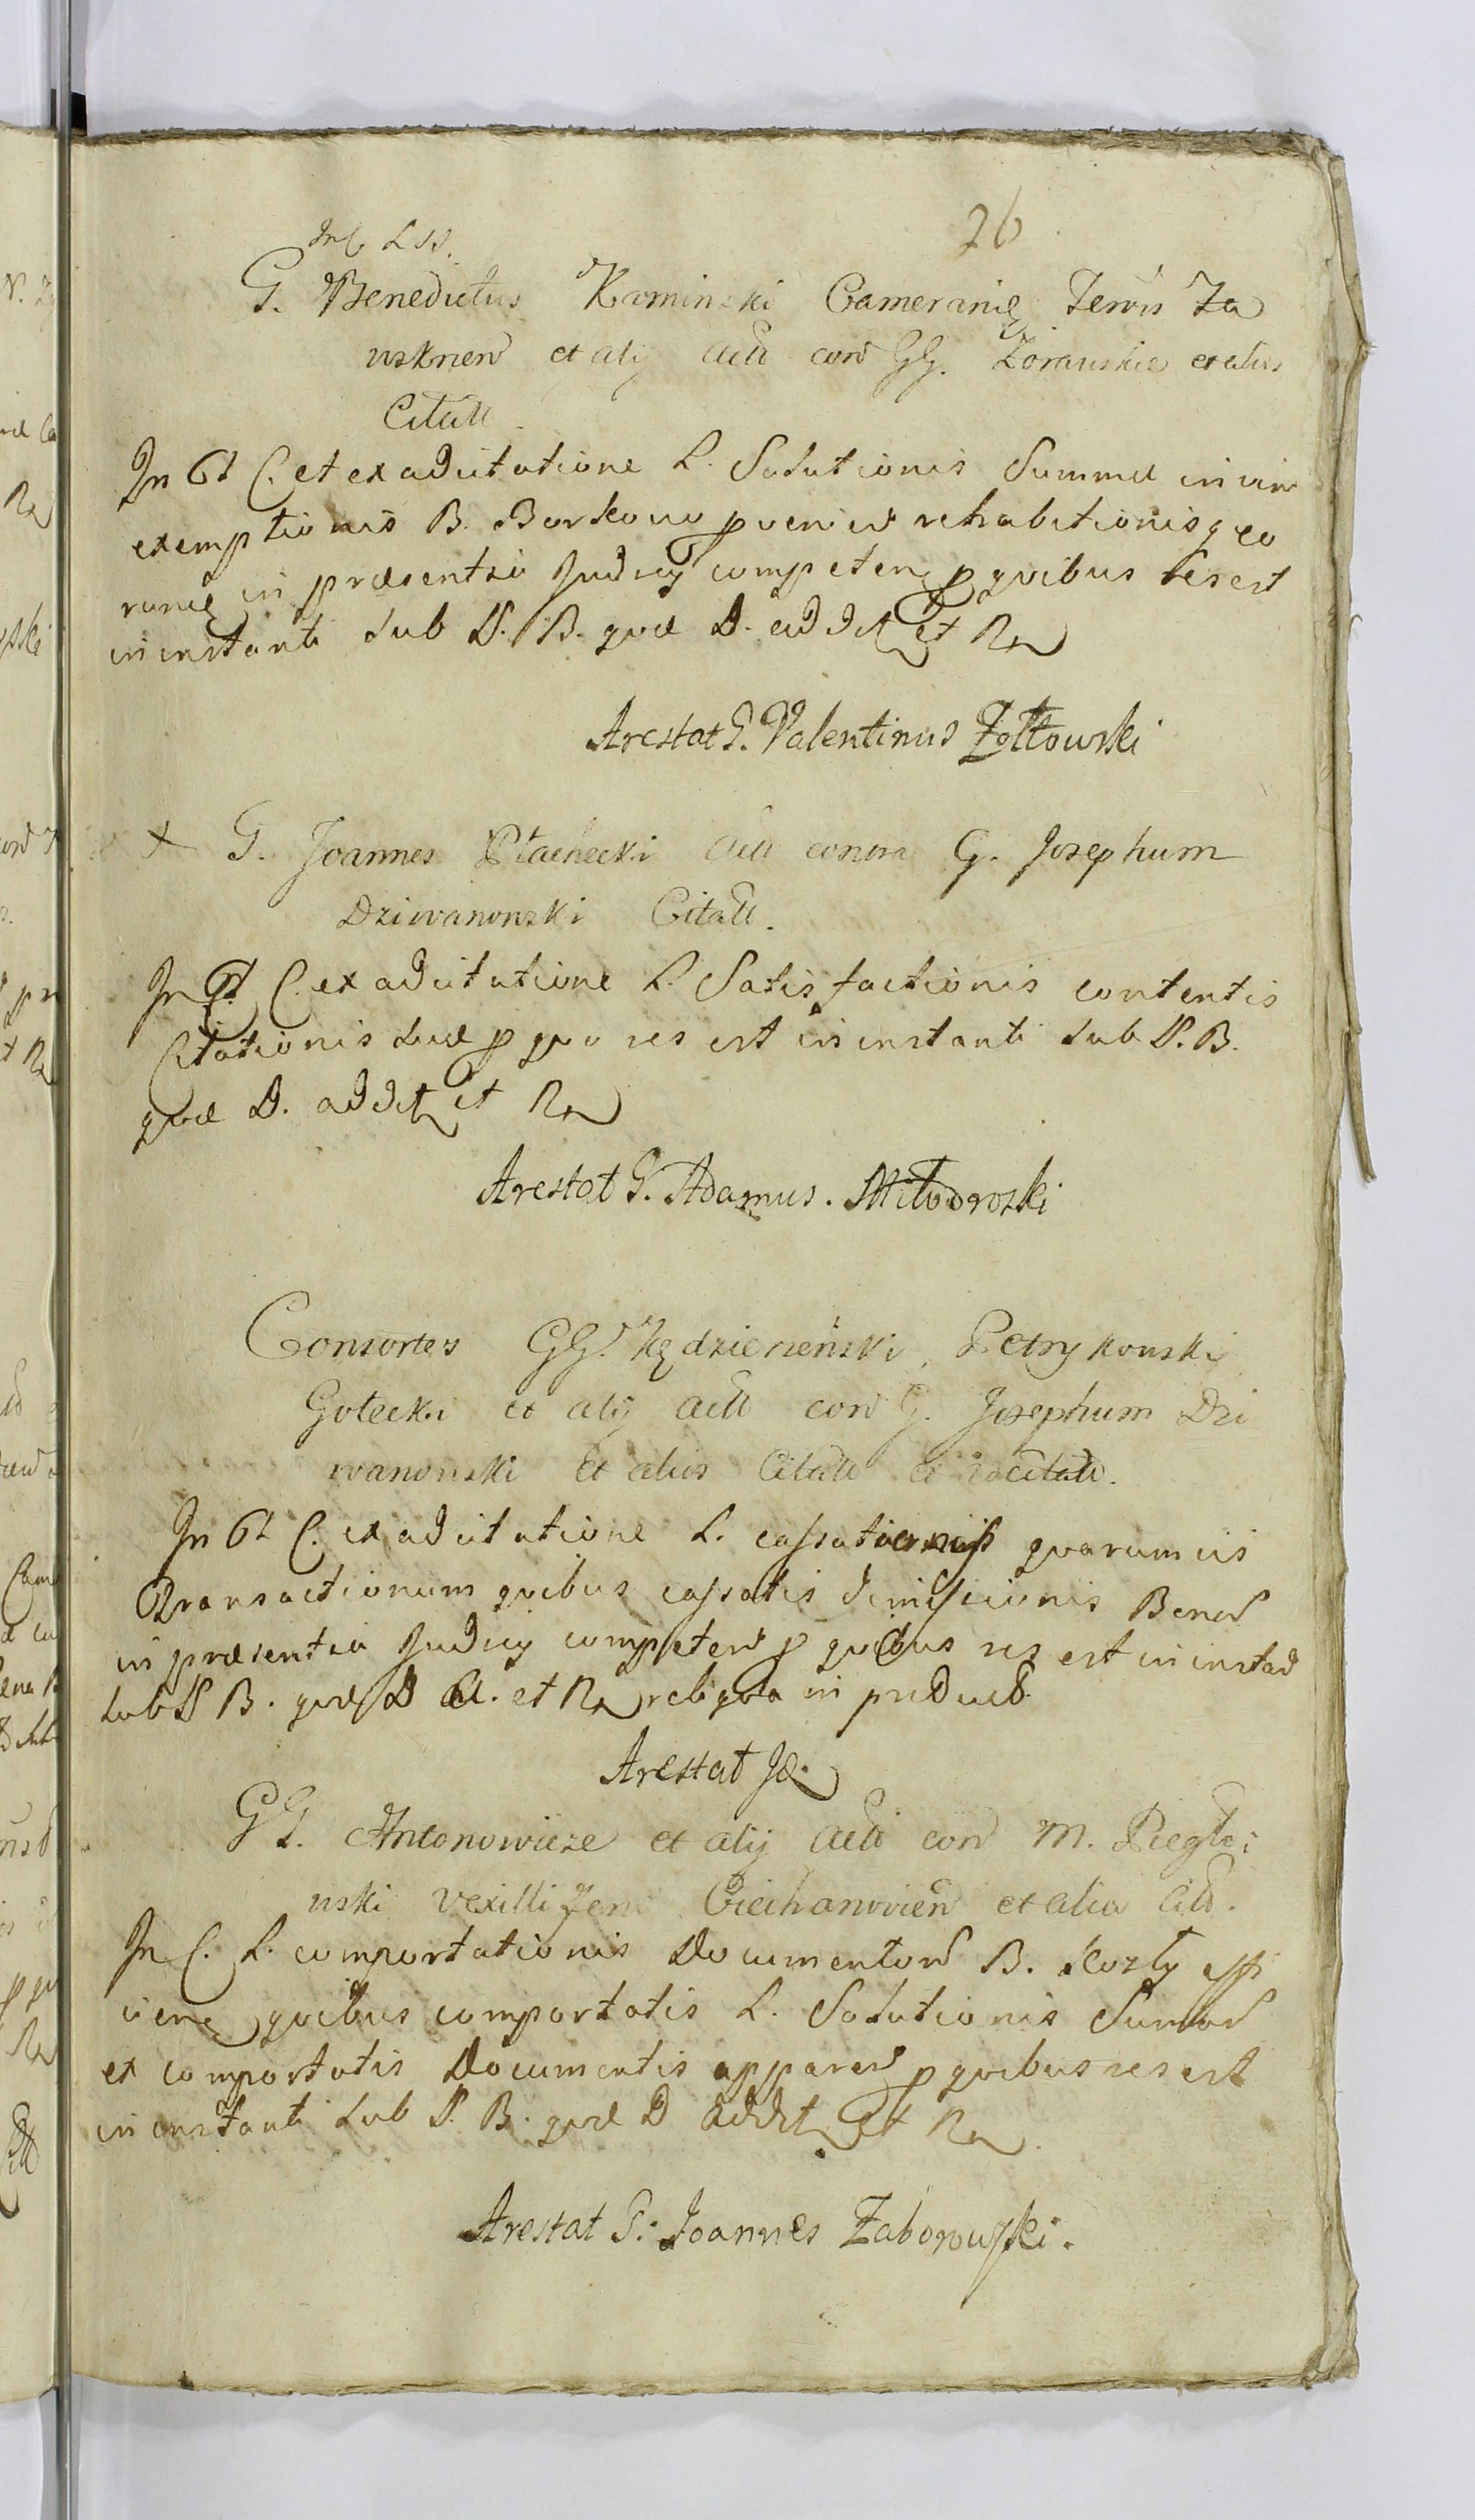 26
G. Benedictus Kaminski Camerarig Terris Za
wskrien et alij Actt con GG. Zorawskie et alios
Citatt
In C. et ex adcitatione L. Solutionis Summæ in vim
exemptionis B. Borkowo proveniē rehabitionisq eo
rundē in præsentia Judicij competenē p quibus res est
in instanti sub P. B. quæ D. addet et Ra
Arestat G. Valentinus Żołtowski
+ G. Joannes Płachecki Actt contra G. Josephum
Dziwanowski Citatt.
In C. ex adcitatione L. Satisfactionis contentis
Citationis suæ p quo res est in instanti sub P. B.
quæ D. addet et Ra
Arestat G. Adamus. Miłodroski
Consortes GG. Kędzierzeński, Petrykowski
Gołecki et alij Actt con G. Josephum Dzi
wanowski et alios Citatt et adcitatt.
In C. ex adcitatione L. cassationis quarumvis
Transactionum quibus cassatis dimissionis Bonor
in præsentia Judicij competen p quibus res est in instan
sub P B. quæ D A. et Ra reliqua in
Arestat Id.
GG. Antonowicze et alij Actt con M. Piegło:
wski Vexilliferū Ciechanovien et alios Citt.
In C. L. comportationis Documentor B. Kozły
quibus comportatis L. Solutionis Summar
ex comportatis Documentis apparen p quibus res est
in instanti sub P. B. quæ D addet et Ra
Arestat G. Joannes Zaborowski.